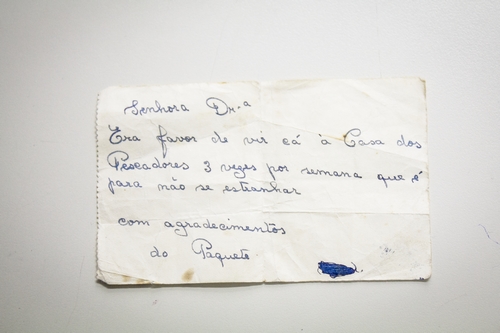 Senhora Dr.ª
Era favor de vir cá à Casa dos
Pescadores 3 vezes por semana que é
para não se estranhar
com agradecimentos
do Paquete